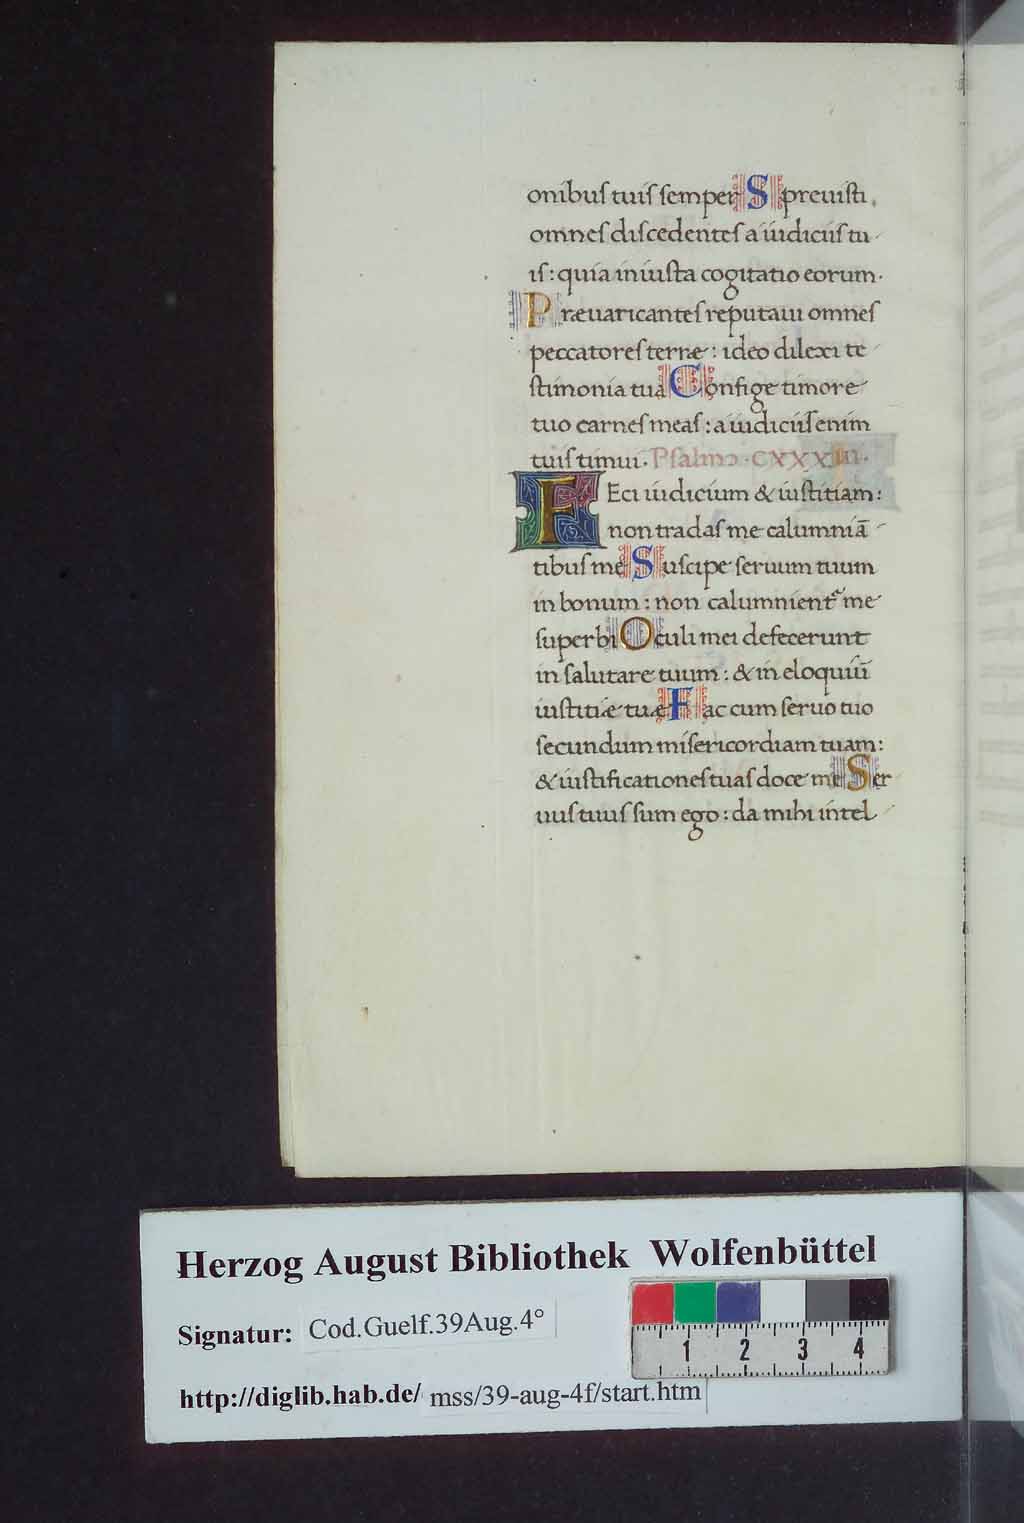 onibuſ tuiſ ſemper Spreuiſti.
omneſ diſcedenteſ a iudiciiſ tu-
iſ: quia iniuſta cogitatio eorum.
Præuaricanteſ reputaui omneſ
peccatoreſ terræ: ideo dilexi te-
ſtimonia tua Confige timore
tuo carneſ meaſ: a iudiciiſ enim
tuiſ timui. Pſalmo. CXXXIII.
FEci iudicium & iuſtitiam:
non tradaſ me calumniā-
tibuſ me Suſcipe ſeruum tuum
in bonum: non calumnient᷑ me
ſuperbi Oculi mei defecerunt
in ſalutare tuum: & in eloquiū
iuſtitiæ tuæ Fac cum ſeruo tuo
ſecundum miſericordiam tuam:
& iuſtificationeſ tuaſ doce me Ser
uuſ tuuſ ſum ego: da mihi intel-
Herzog August Bibliothek Wolfenbüttel
Signatur: Cod.Guelf.39Aug.4°
http://diglib.hab.de/ mss/39-aug-4f/start.htm
1 2 3 4